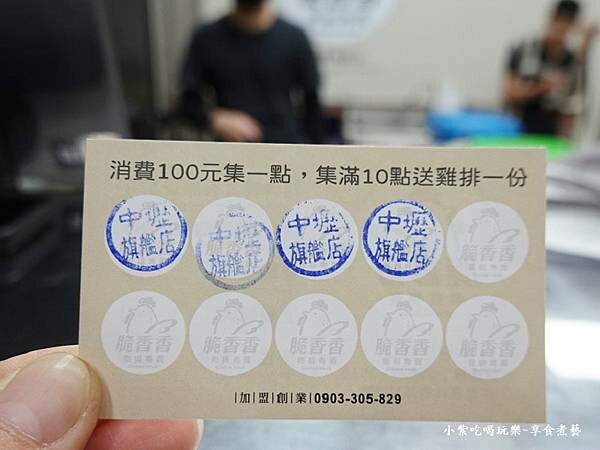 消費100元集一點，集滿10點送雞排一份
中壢
旗艦店
中壢
旗艦店
中壢
旗艦店
中壢
旗艦店
脆香香
脆香香
脆香香
脆香香
脆香香
脆香香
|加|盟|創|業|0903-305-829
小紫吃喝玩樂~享食煮藝